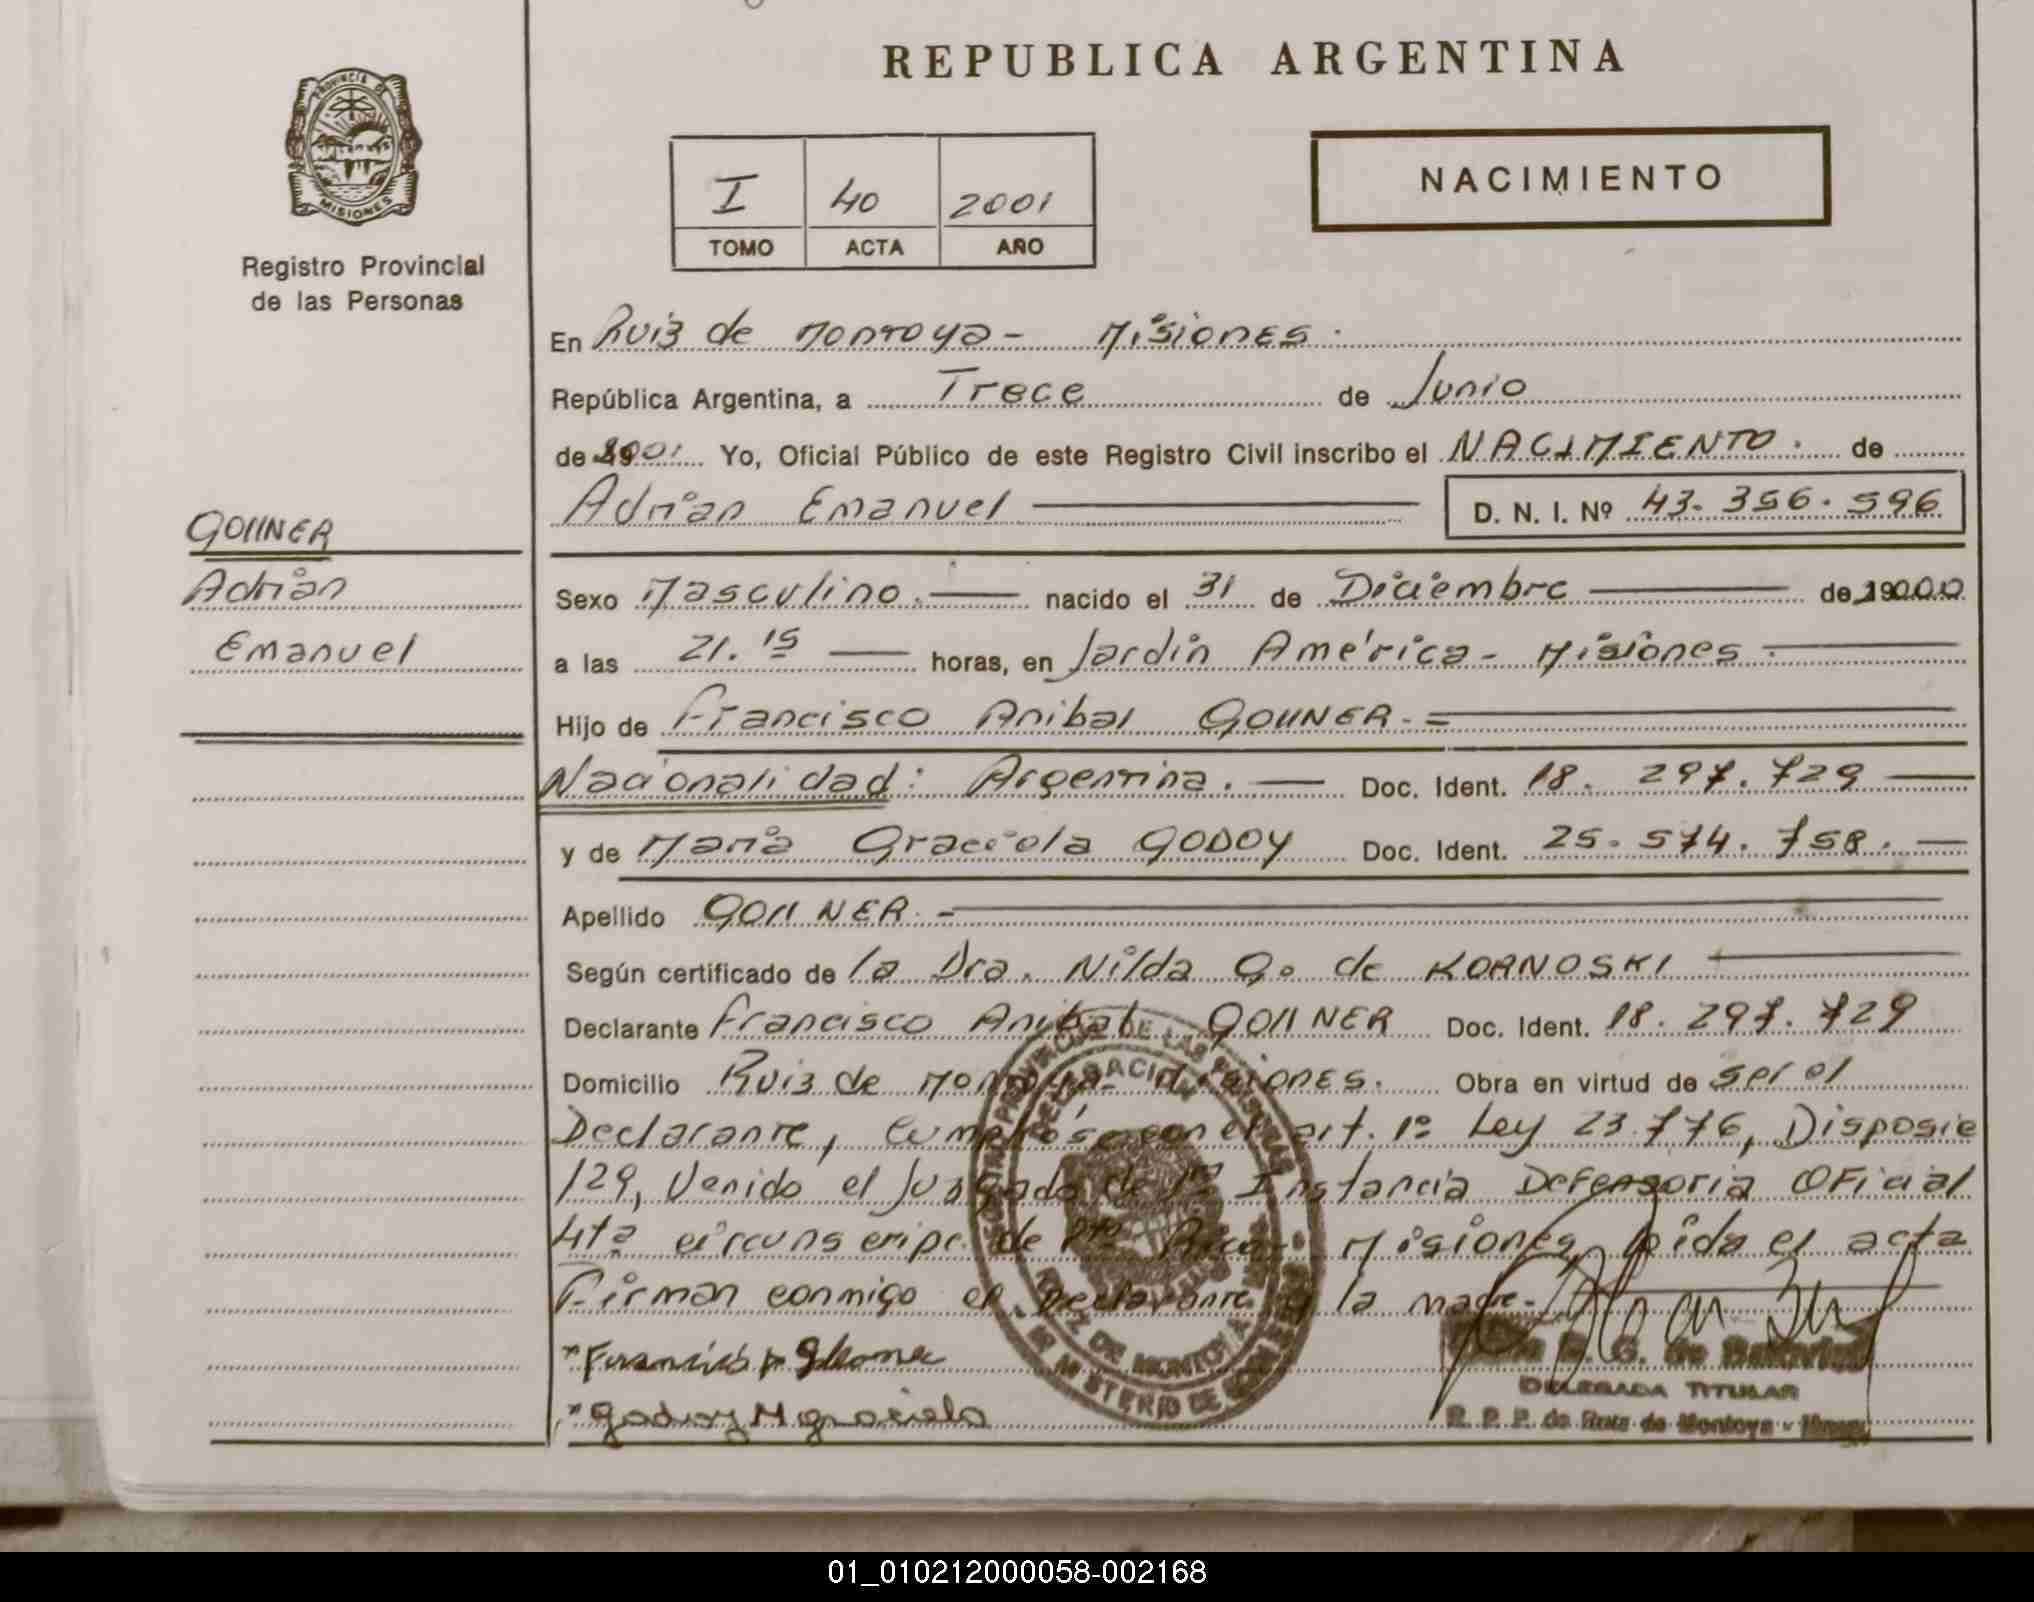 REPUBLICA ARGENTINA
PROVINCIA DE
MISIONES
Registro Provincial
de las Personas
I 40 2001
TOMO ACTA AÑO
NACIMIENTO
En Ruiz de Montoya - Misiones.
República Argentina, a Trece de Junio
de 2001 Yo, Oficial Público de este Registro Civil inscribo el NACIMIENTO. de
Adrián Emanuel D. N. I. Nº 43.356.596
GOllNER
Adrián
Emanuel
Sexo Masculino. nacido el 31 de Diciembre de 2000
a las 21.15 horas, en Jardín América - Misiones
Hijo de Francisco Anibal GOllNER. =
Nacionalidad: Argentina. Doc. Ident. 18.297.729
y de María Graciela GODOY Doc. Ident. 25.574.758.
Apellido GOllNER. -
Según certificado de la Dra. Nilda G. de KORNOSKI
Declarante Francisco Anibal GOllNER Doc. Ident. 18.297.729
Domicilio Ruiz de Montoya - Misiones. Obra en virtud de ser el
Declarante, cumplióse con el art. 1º Ley 23.776, Disposic
129, Venido el Juzgado de 1ra Instancia Defensoria Oficial
4ta circunscripc. de Pto Rico - Misiones leída el acta
Firman conmigo el Declarante y la madre. -
REGISTRO PROVINCIAL DE LAS PERSONAS
DELEGACION
RUIZ DE MONTOYA
MINISTERIO DE GOBIERNO
Godoy M graciela
DELEGADA TITULAR
R. P. P. de Ruiz de Montoya - Mnes.
01_010212000058-002168